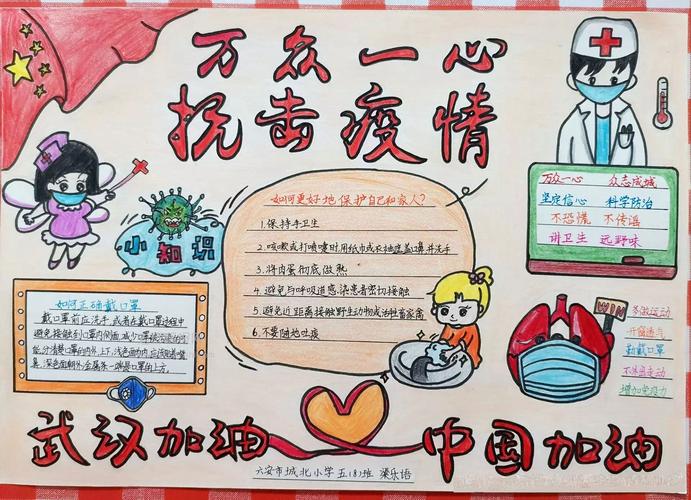 万众一心
抗击疫情
小知识
如何更好地保护自己和家人?
1.保持手卫生
2.咳嗽或打喷嚏时用纸巾或衣袖遮盖口鼻并洗手
3.将肉蛋彻底做熟
4.避免与呼吸道感染患者密切接触
5.避免近距离接触野生动物或活牲畜家禽
6.不要随地吐痰
万众一心 众志成城
坚定信心 科学防治
不恐慌 不传谣
讲卫生 远野味
如何正确戴口罩
戴口罩前应洗手,或者在戴口罩过程中
避免接触到口罩内侧面,减少口罩被污染的可
能,分清楚口罩的内外、上下,浅色面为内,应该贴着嘴
鼻,深色面朝外;金属条一端是口罩的上方。
WIN
多做运动
开窗通风
勤戴口罩
不乱走动
增加免疫力
武汉加油
中国加油
六安市城北小学五(8)班 梁乐语